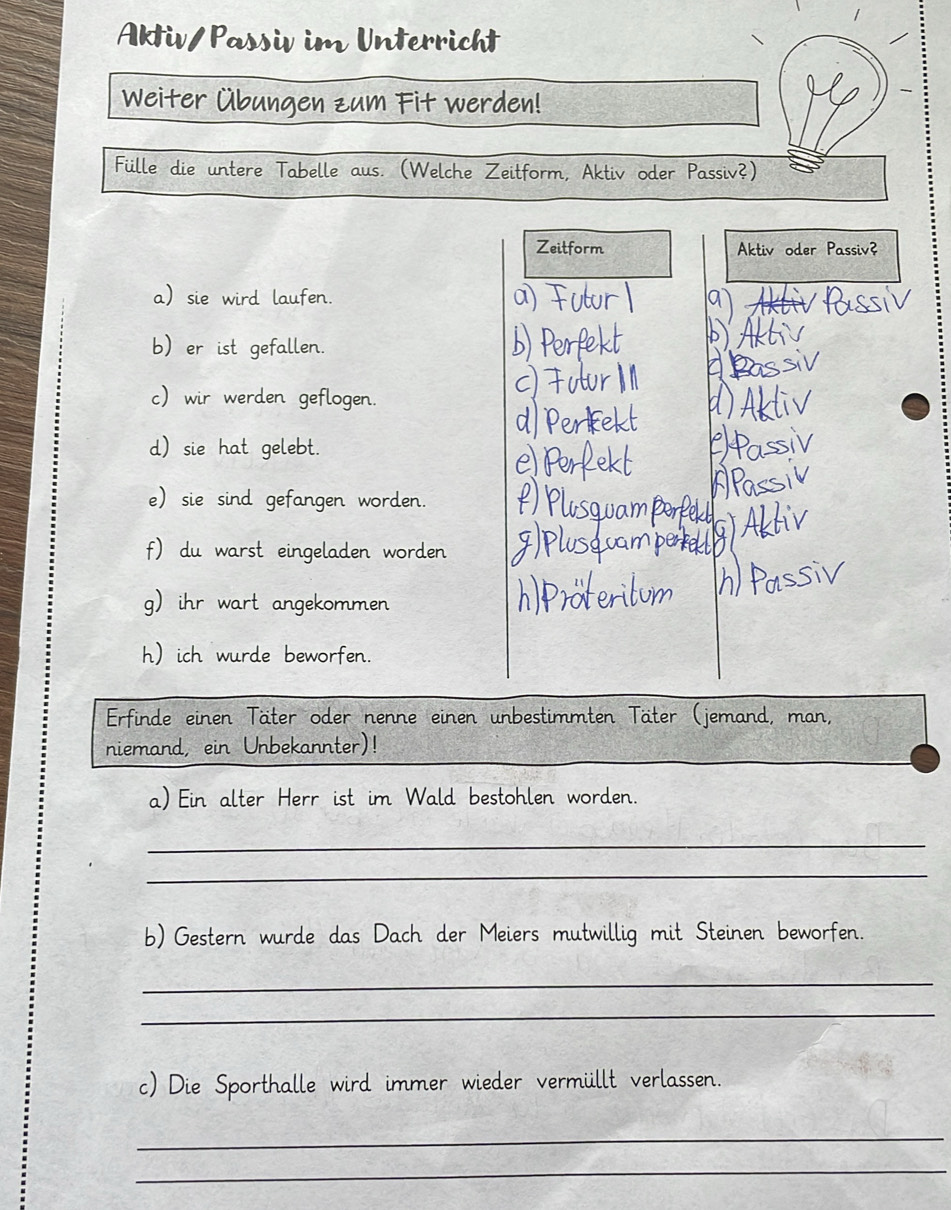 Aktiv/Passiv im Unterricht
Weiter Übungen zum Fit werden!
Fülle die untere Tabelle aus. (Welche Zeitform, Aktiv oder Passiv?)
Zeitform
Aktiv oder Passiv?
a) sie wird laufen.
b) er ist gefallen.
c) wir werden geflogen.
d) sie hat gelebt.
e) sie sind gefangen worden.
f) du warst eingeladen worden
g) ihr wart angekommen
h) ich wurde beworfen.
a) Futur I
b) Perfekt
c) Futur II
d) Perfekt
e) Perfekt
f) Plusquamperfekt
g) Plusquamperfekt
h) Präteritum
a) Aktiv Passiv
b) Aktiv
c) Passiv
d) Aktiv
e) Passiv
f) Passiv
g) Aktiv
h) Passiv
Erfinde einen Täter oder nenne einen unbestimmten Täter (jemand, man,
niemand, ein Unbekannter)!
a) Ein alter Herr ist im Wald bestohlen worden.
b) Gestern wurde das Dach der Meiers mutwillig mit Steinen beworfen.
c) Die Sporthalle wird immer wieder vermüllt verlassen.